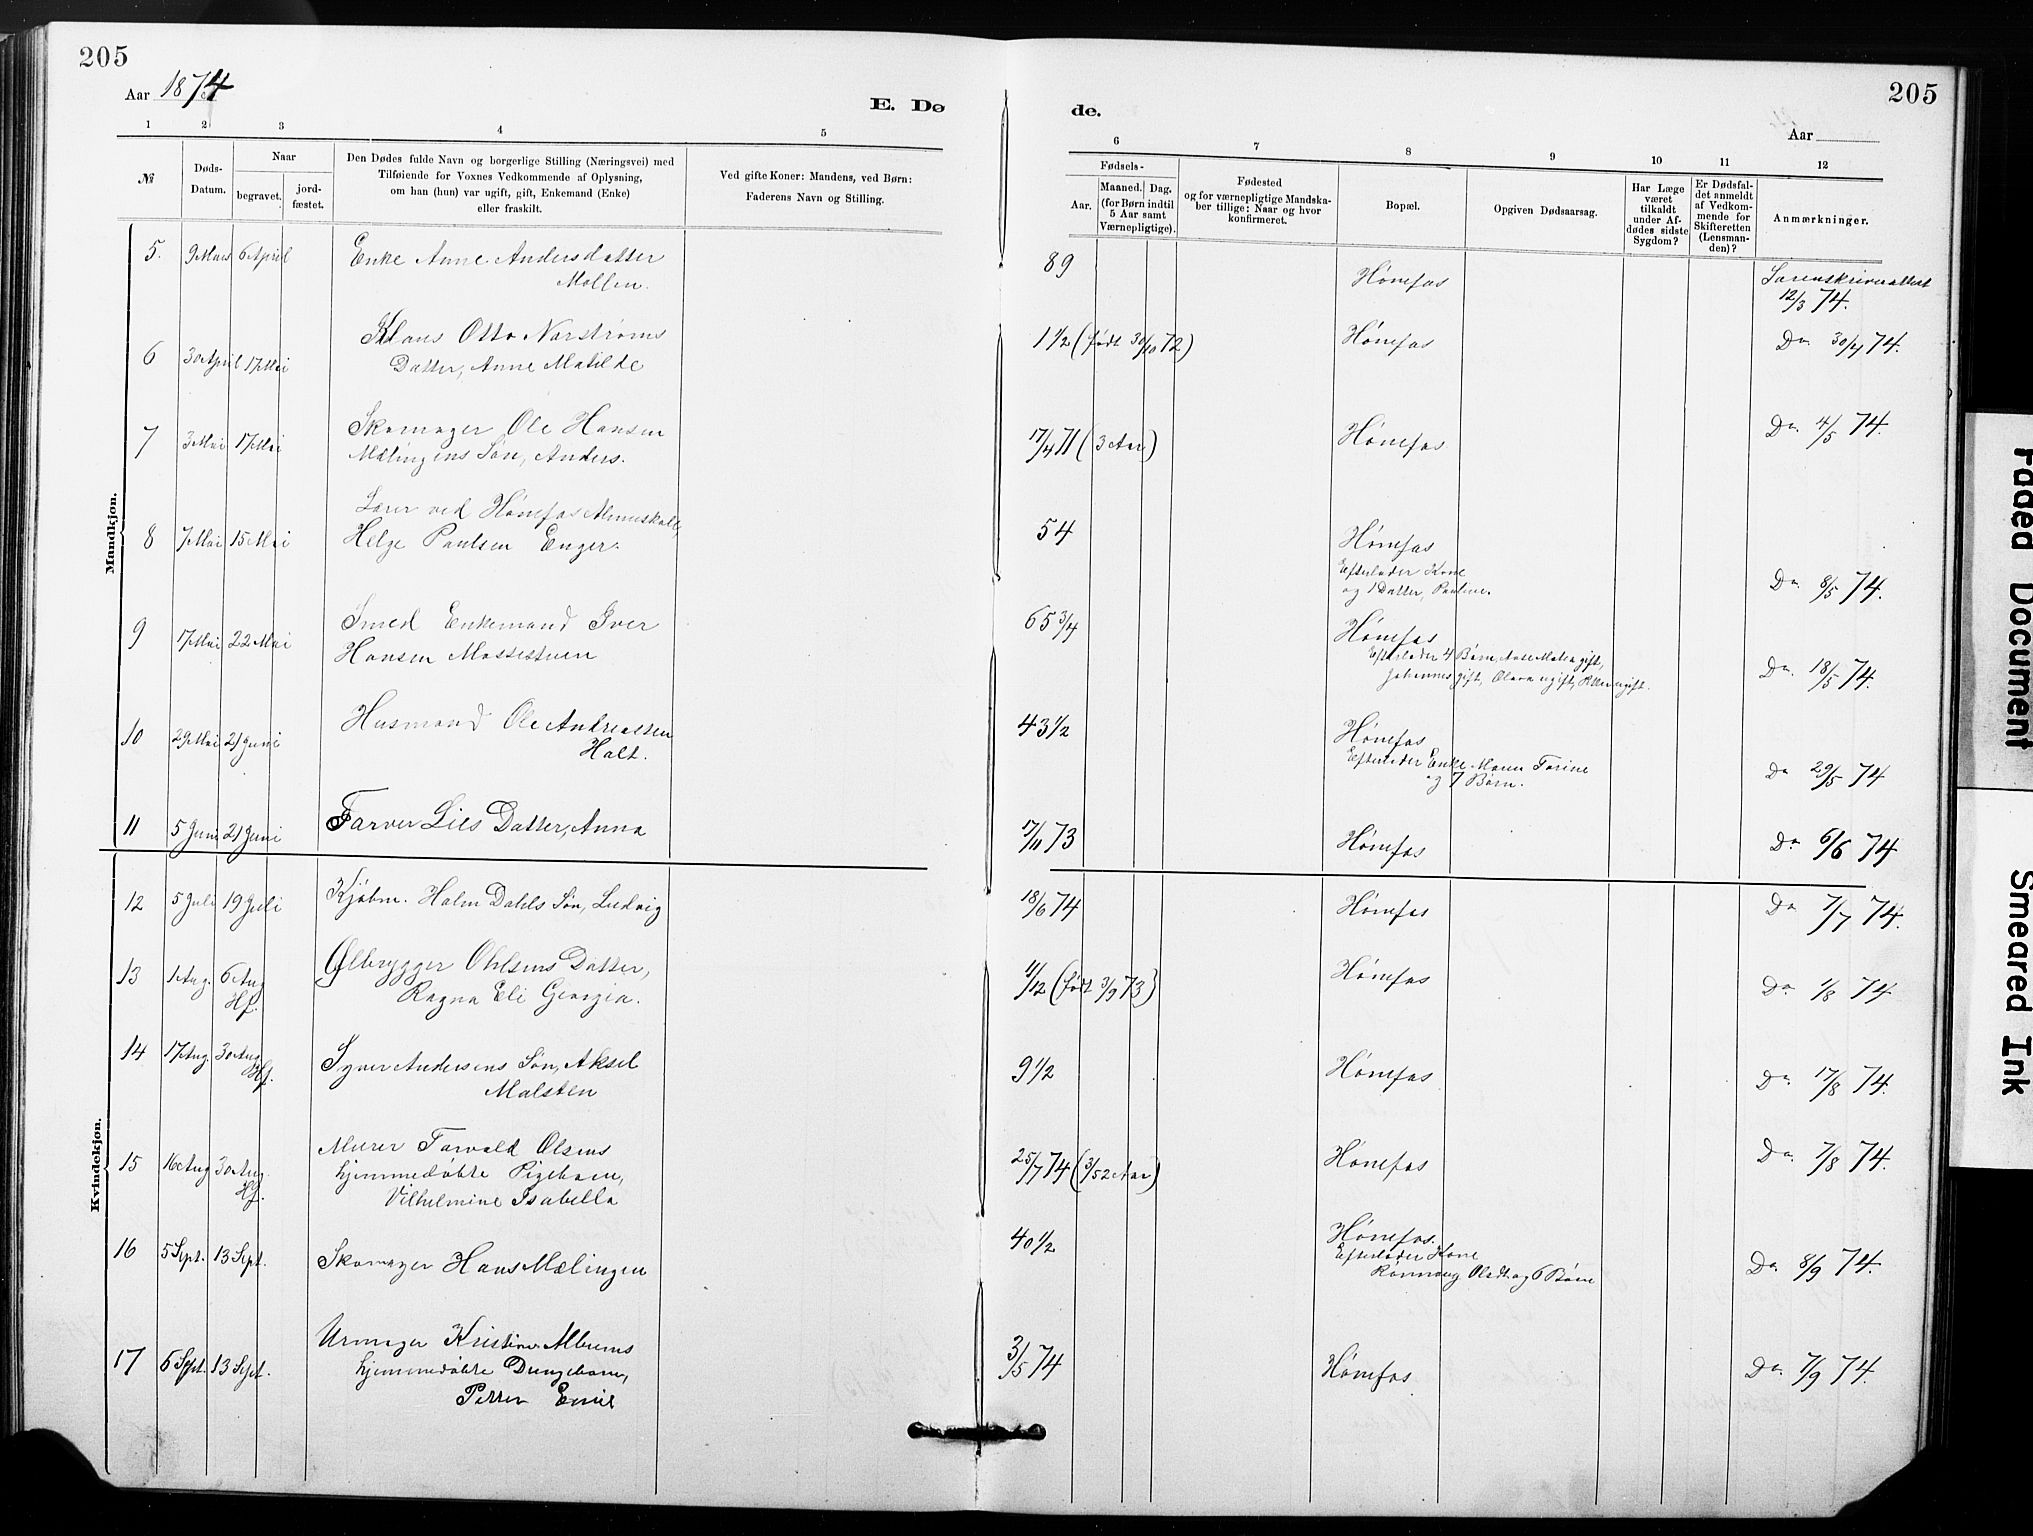 205
205
Aar 1874
E. Dø
de.
Aar
1 2 3 4 5
6 7 8 9 10 11 12
№
Døds-
Datum.
Naar
begravet.
jord-
fæstet.
Den Dødes fulde Navn og borgerlige Stilling (Næringsvei) med
Tilføiende for Voxnes Vedkommende af Oplysning,
om han (hun) var ugift, gift, Enkemand (Enke)
eller fraskilt.
Ved gifte Koner: Mandens, ved Børn:
Faderens Navn og Stilling.
Fødsels-
Aar.
Maaned. Dag.
(for Børn indtil
5 Aar samt
Værnepligtige).
Fødested
og for værnepligtige Mandska-
ber tillige: Naar og hvor
konfirmeret.
Bopæl.
Opgiven Dødsaarsag.
Har Læge
været
tilkaldt
under Af-
dødes sidste
Sygdom?
Er Dødsfal-
det anmeldt
af Vedkom-
mende for
Skifteretten
(Lensman-
den)?
Anmærkninger.
Mandkjøn.
5. 9 Mars 6 April Enke Anne Andersdatter
Mollen.
89 Hønefos Sorenskriverattest
12/3 74.
6 30 April 17 Mai Klaus Otto Norstrøms
Datter, Anne Matilde
1 1/2 (født 30/10 72) Hønefos Do. 30/4 74.
7 3 Mai 17 Mai Skomager Ole Hansen
Mælingens Søn, Anders.
17/4 71 (3 Aar) Hønefos Do. 4/5 74.
8 7 Mai 15 Mai Lærer ved Hønefos Almueskole,
Helge Paulsen Enger.
54 Hønefos
Efterlader Kone
og 1 Datter, Pauline.
Do. 8/5 74.
9 17 Mai 22 Mai Smed Enkemand Iver
Hansen Mossestuen
65 3/4 Hønefos
Efterlader 4 Børn, gift,
Johannes gift, Olava ugift, ugift.
Do. 18/5 74.
10 29 Mai 21 Juni Husmand Ole Andreassen
Holt.
43 1/2 Hønefos
Efterlader Enke Maren Torine
og 7 Børn.
Do 29/5 74
11 5 Juni 21 Juni Farver Lies Datter, Anna
17/11 73 Hønefos Do 6/6 74
Kvindekjøn.
12 5 Juli 19 Juli Kjøbm. Holm Dahls Søn, Ludvig
18/6 74 Hønefos Do 7/7 74.
13 1 Aug. 6 Aug Hf. Ølbrygger Ohlsens Datter,
Ragna Eli Georgia.
11/12 (født 3/9 73) Hønefos Do. 1/8 74
14 17 Aug. 30 Aug Hf. Syver Andersens Søn, Aksel
Molsten
9 1/2 Hønefos Do. 17/8 74.
15 16 Aug 30 Aug. Hf. Murer Torvald Olsens
hjemmedøbte Pigebarn,
Vilhelmine Isabella
25/7 74 (3/52 Aar) Hønefos Do. 7/8 74.
16 5 Sept. 13 Sept. Skomager Hans Mælingen
40 1/2 Hønefos.
Efterlader Kone
Rønnaug Olsdt og 6 Børn
Do. 8/9 74.
17 6 Sept. 13 Sept. Urmager Kristian Albums
hjemmedøbte Drengebarn,
Petter Emil
3/5 74 Hønefos Do. 7/9 74.
Faded Document
Smeared Ink